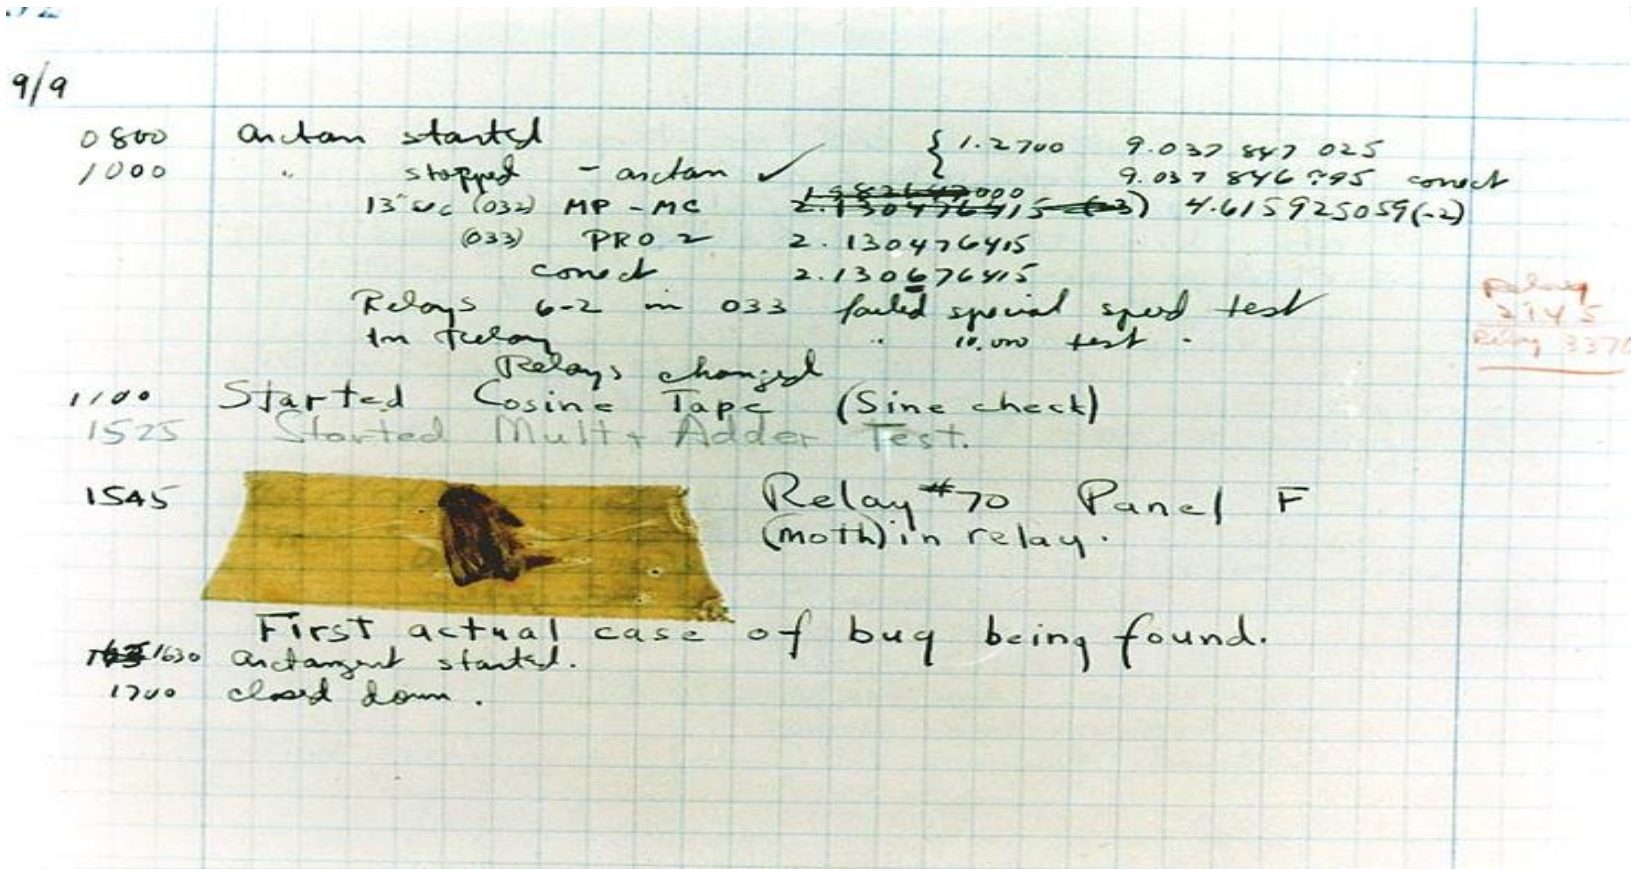 9/9
0800 arctan started { 1.2700 9.037 847 025
1000 " stopped - arctan ✓ 9.037 846 995 conect
13" sec (032) MP - MC 2.130476415 (-3) 4.615925059(-2)
(033) PRO 2 2.130476415
conect 2.130676415
Relays 6-2 in 033 failed special speed test
in Relay " 10.000 test.
Relay
2145
Relay 3370
Relays changed
1100 Started Cosine Tape (Sine check)
1525 Started Mult + Adder Test.
1545 Relay #70 Panel F
(moth) in relay.
First actual case of bug being found.
1630 arctangent started.
1700 closed down.